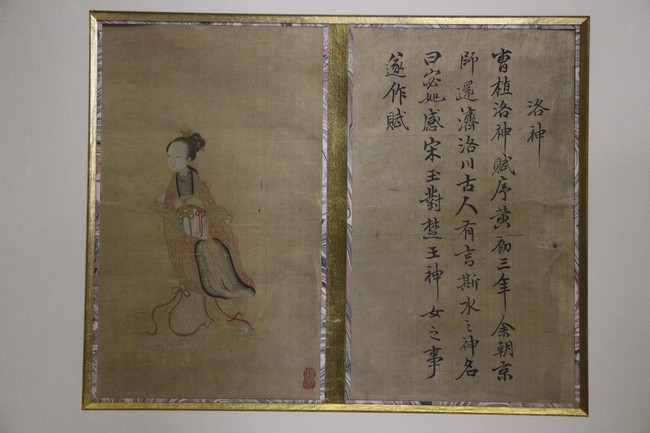 洛神
曹植洛神賦序黃初三年余朝京
師還濟洛川古人有言斯水之神名
曰宓妃感宋玉對楚王神女之事
遂作賦